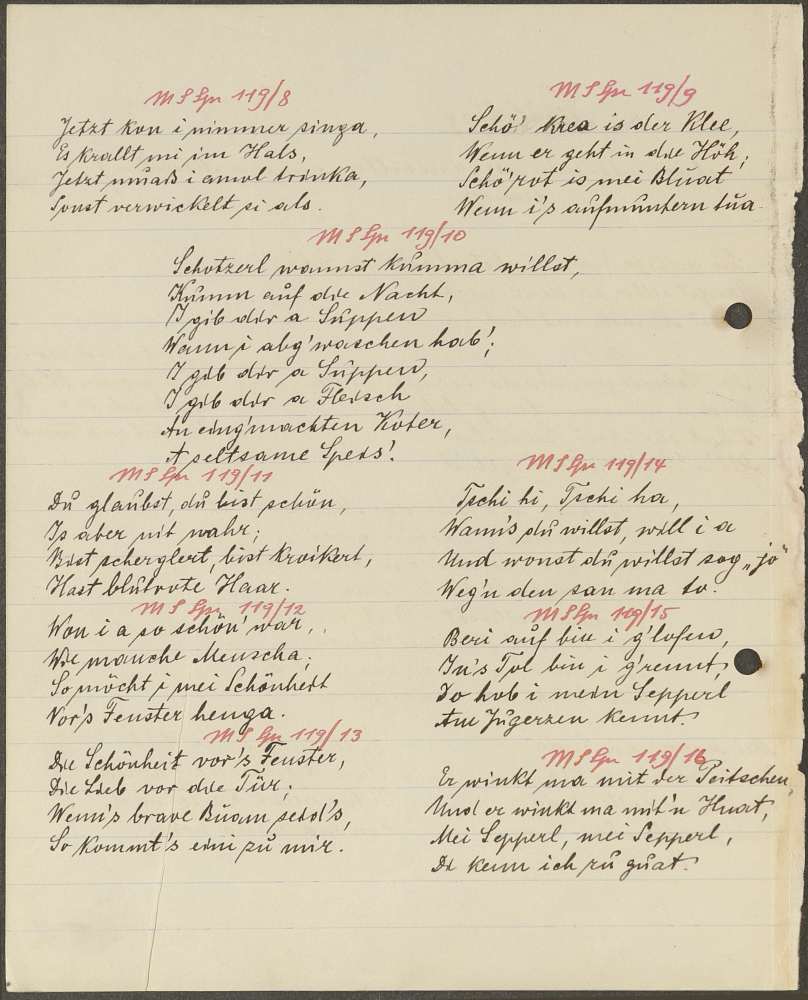 M S Spr 119/8
Jetzt kon i nimmer singa,
Es krallt mi im Hals,
Jetzt muaß i amol trinka,
Sonst verwickelt si als.
M S Spr 119/9
Schö' krea is der Klee,
Wenn er geht in die Höh,
Schö' rot is mei Bluat
Wenn i's aufmuntern tua.
M S Spr 119/10
Schotzerl wannst kumma willst,
Kumm auf die Nacht,
I gib dir a Suppen
Wann i abg'waschen hab';
I gib dir a Suppen,
I gib dir a Fleisch
An eing'machten Koter,
A seltsame Speis'.
M S Spr 119/11
Du glaubst, du bist schön,
Is aber nit wahr;
Bist scherglert, bist kroikert,
Hast blutrote Haar.
M S Spr 119/12
Won i a so schön' war,
Wie manche Menscha,
So möcht i mei Schönheit
Vor's Fenster henga.
M S Spr 119/13
Die Schönheit vor's Fenster,
Die Lieb vor die Tür;
Wenn's brave Buam seid's,
So kommt's eini zu mir.
M S Spr 119/14
Tschi hi, Tschi ha,
Wann's du willst, will i a
Und wonst du willst sog „jo"
Weg'n den san ma to.
M S Spr 119/15
Beri auf bin i g'lofen,
In's Tol bin i g'rennt,
Do hob i mein Sepperl
Am Jugerzen kennt.
M S Spr 119/16
Er winkt ma mit der Peitschen,
Und er winkt ma mit'n Huat,
Mei Sepperl, mei Sepperl,
Di kenn ich zu guat.